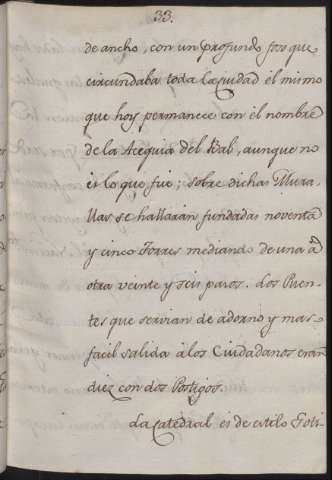 33.
de ancho, con un profundo foso que
circundaba toda la Ciudad el mismo
que hoy permanece con el nombre
de la Acequia del Bal, aunque no
es lo que fue; sobre dichas Mura-
llas se hallaran fundadas noventa
y cinco Torres mediando de una à
otra veinte y seis pasos. Los Puen-
tes que servian de adorno y mas
facil salida à los Ciudadanos eran
diez con dos Postigos.
La Catedral es de estilo Goti-